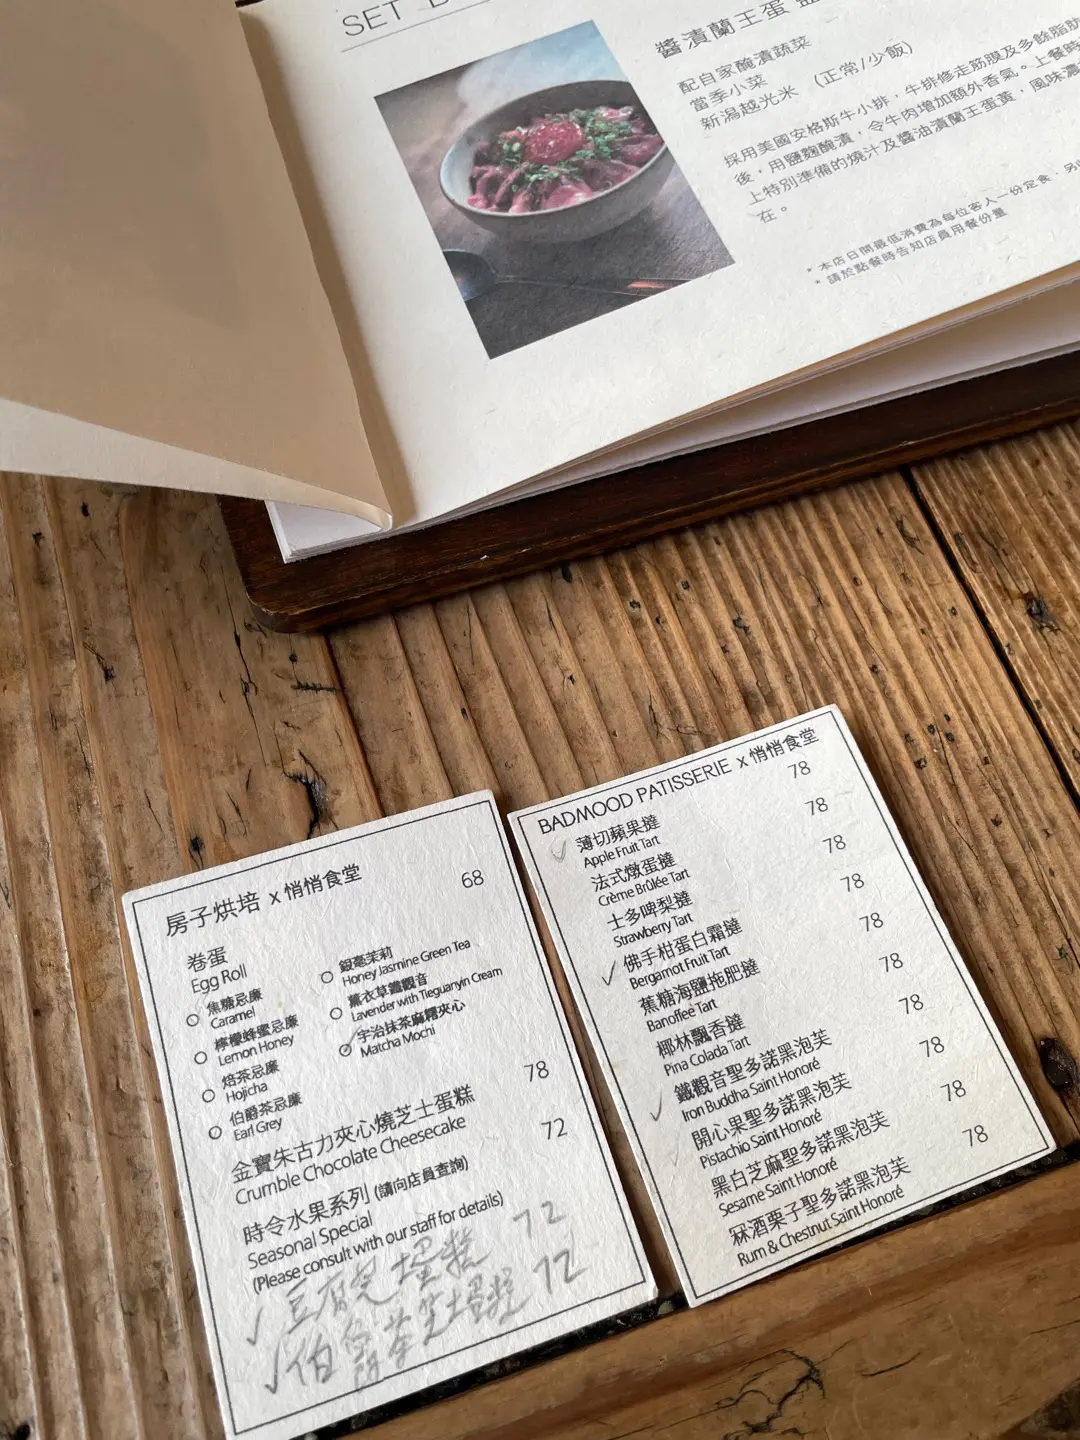 SET
醬漬蘭王蛋
配自家醃漬蔬菜
當季小菜
新潟越光米 (正常/少飯)
採用美國安格斯牛小排，牛排修走筋膜及多餘脂肪
後，用鹽麴醃漬，令牛肉增加額外香氣。上餐時
上特別準備的燒汁及醬油漬蘭王蛋黃，風味濃
在。
* 本店日間最低消費為每位客人一份定食，另
* 請於點餐時告知店員用餐份量
房子烘培 x 悄悄食堂
卷蛋 68
Egg Roll
焦糖忌廉
Caramel
檸檬蜂蜜忌廉
Lemon Honey
焙茶忌廉
Hojicha
伯爵茶忌廉
Earl Grey
銀毫茉莉
Honey Jasmine Green Tea
薰衣草鐵觀音
Lavender with Tieguanyin Cream
宇治抹茶麻糬夾心
Matcha Mochi
金寶朱古力夾心燒芝士蛋糕 78
Crumble Chocolate Cheesecake
時令水果系列 (請向店員查詢) 72
Seasonal Special
(Please consult with our staff for details)
豆腐芝士蛋糕 72
伯爵茶芝士蛋糕 72
BADMOOD PATISSERIE x 悄悄食堂
薄切蘋果撻 78
Apple Fruit Tart
法式燉蛋撻 78
Crème Brûlée Tart
士多啤梨撻 78
Strawberry Tart
佛手柑蛋白霜撻 78
Bergamot Fruit Tart
蕉糖海鹽拖肥撻 78
Banoffee Tart
椰林飄香撻 78
Pina Colada Tart
鐵觀音聖多諾黑泡芙 78
Iron Buddha Saint Honoré
開心果聖多諾黑泡芙 78
Pistachio Saint Honoré
黑白芝麻聖多諾黑泡芙 78
Sesame Saint Honoré
冧酒栗子聖多諾黑泡芙 78
Rum & Chestnut Saint Honoré